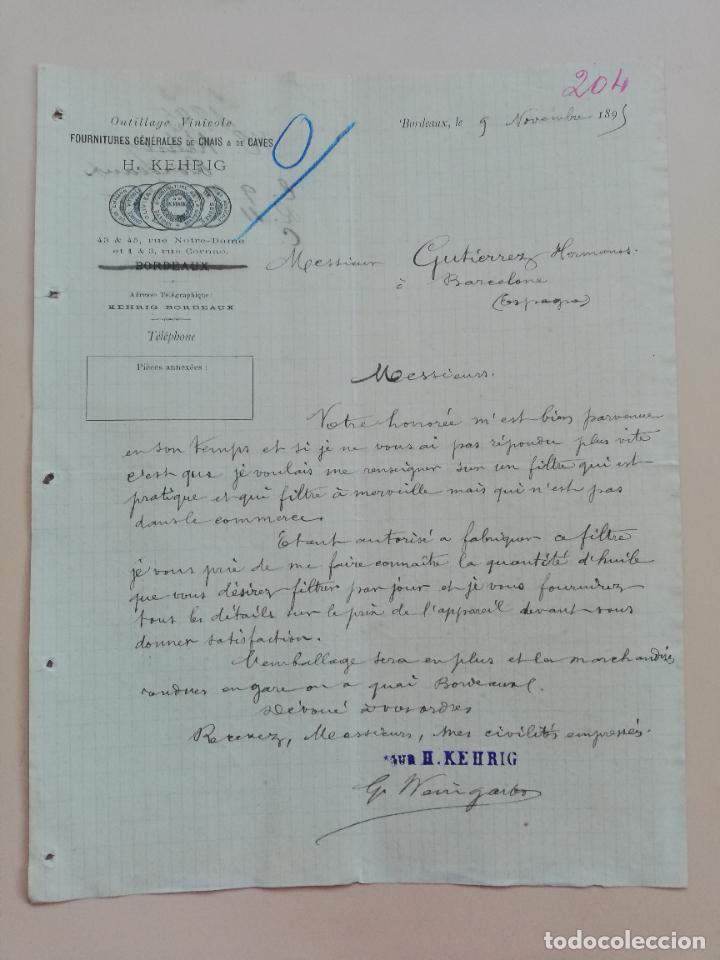 204
Outillage Vinicole
FOURNITURES GÉNÉRALES DE CHAIS & DE CAVES
H. KEHRIG
43 & 45, rue Notre-Dame
et 1 & 3, rue Cornac.
BORDEAUX
Adresse Télégraphique :
KEHRIG BORDEAUX
Téléphone
Pièces annexées :
Bordeaux, le 9 Novembre 1895
Messieurs Gutierrez Hermanos.
à Barcelone
(Espagne)
Messieurs.
Votre honorée m'est bien parvenue
en son temps et si je ne vous ai pas répondu plus vite
c'est que je voulais me renseigner sur un filtre qui est
pratique et qui filtre à merveille mais qui n'est pas
dans le commerce.
Etant autorisé a fabriquer ce filtre
je vous prie de me faire connaître la quantité d'huile
que vous désirez filtrer par jour et je vous fournirez
tous les détails sur le prix de l'appareil devant vous
donner satisfaction.
L'emballage sera en plus et les marchandises
rendues en gare ou a quai Bordeaux.
Dévoué à vos ordres
Recevez, Messieurs, mes civilités empressés.
POUR H. KEHRIG